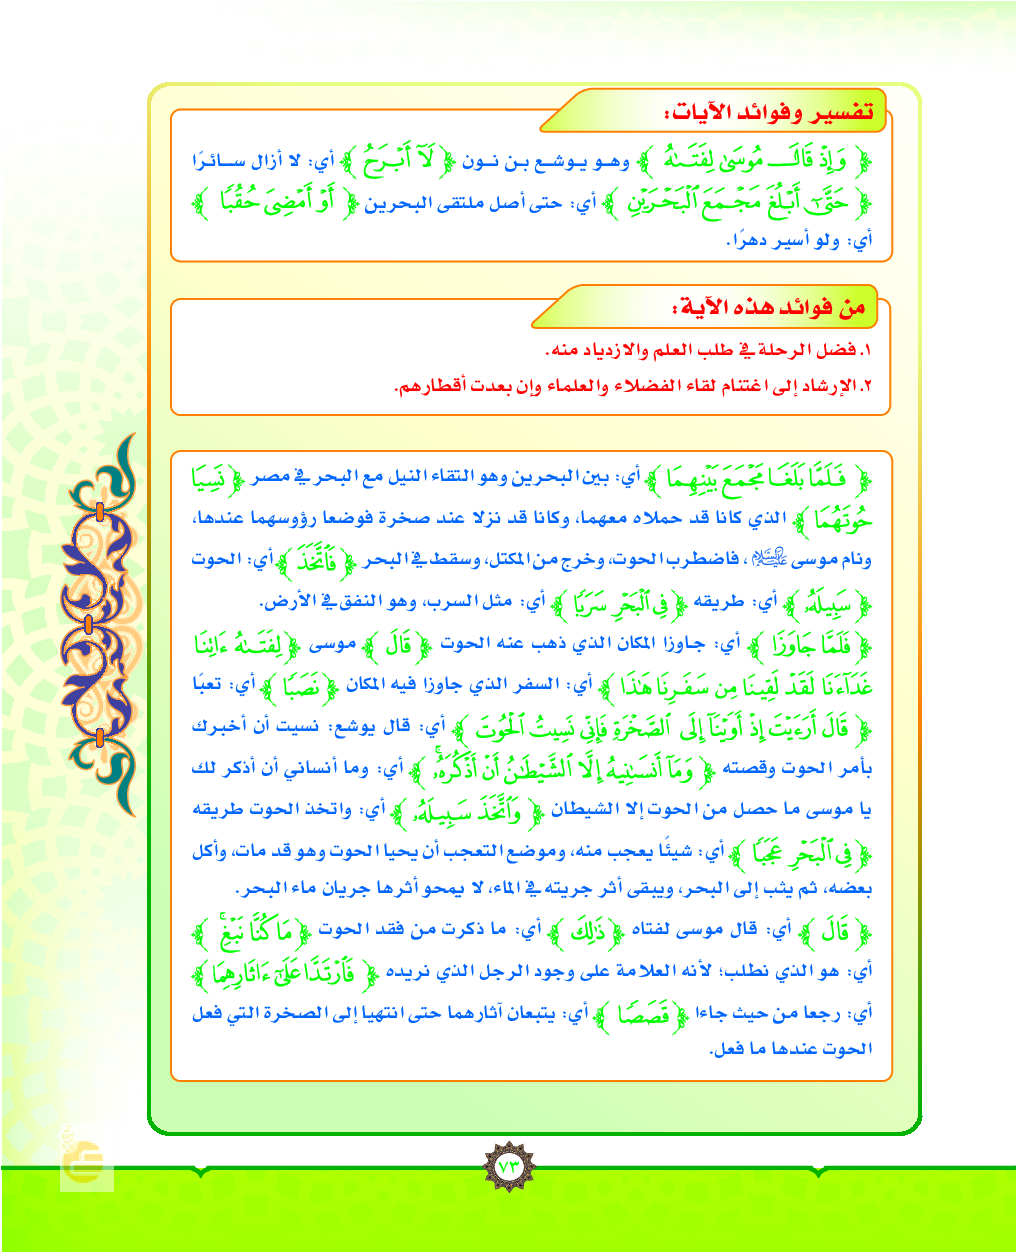 تفسير وفوائد الآيات:
﴿ وَإِذْ قَالَ مُوسَىٰ لِفَتَىٰهُ ﴾ وهو يوشع بن نون ﴿ لَآ أَبْرَحُ ﴾ أي: لا أزال سائرًا
﴿ حَتَّىٰٓ أَبْلُغَ مَجْمَعَ ٱلْبَحْرَيْنِ ﴾ أي: حتى أصل ملتقى البحرين ﴿ أَوْ أَمْضِىَ حُقُبًا ﴾
أي: ولو أسير دهرًا.
من فوائد هذه الآية:
١. فضل الرحلة في طلب العلم والازدياد منه.
٢. الإرشاد إلى اغتنام لقاء الفضلاء والعلماء وإن بعدت أقطارهم.
﴿ فَلَمَّا بَلَغَا مَجْمَعَ بَيْنِهِمَا ﴾ أي: بين البحرين وهو التقاء النيل مع البحر في مصر ﴿ نَسِيَا
حُوتَهُمَا ﴾ الذي كانا قد حملاه معهما، وكانا قد نزلا عند صخرة فوضعا رؤوسهما عندها،
ونام موسى عليه السلام، فاضطرب الحوت، وخرج من المكتل، وسقط في البحر ﴿ فَٱتَّخَذَ ﴾ أي: الحوت
﴿ سَبِيلَهُۥ ﴾ أي: طريقه ﴿ فِى ٱلْبَحْرِ سَرَبًا ﴾ أي: مثل السرب، وهو النفق في الأرض.
﴿ فَلَمَّا جَاوَزَا ﴾ أي: جاوزا المكان الذي ذهب عنه الحوت ﴿ قَالَ ﴾ موسى ﴿ لِفَتَىٰهُ ءَاتِنَا
غَدَآءَنَا لَقَدْ لَقِينَا مِن سَفَرِنَا هَٰذَا ﴾ أي: السفر الذي جاوزا فيه المكان ﴿ نَصَبًا ﴾ أي: تعبًا
﴿ قَالَ أَرَءَيْتَ إِذْ أَوَيْنَآ إِلَى ٱلصَّخْرَةِ فَإِنِّى نَسِيتُ ٱلْحُوتَ ﴾ أي: قال يوشع: نسيت أن أخبرك
بأمر الحوت وقصته ﴿ وَمَآ أَنسَىٰنِيهُ إِلَّا ٱلشَّيْطَٰنُ أَنْ أَذْكُرَهُۥ ۚ ﴾ أي: وما أنساني أن أذكر لك
يا موسى ما حصل من الحوت إلا الشيطان ﴿ وَٱتَّخَذَ سَبِيلَهُۥ ﴾ أي: واتخذ الحوت طريقه
﴿ فِى ٱلْبَحْرِ عَجَبًا ﴾ أي: شيئًا يعجب منه، وموضع التعجب أن يحيا الحوت وهو قد مات، وأكل
بعضه، ثم يثب إلى البحر، ويبقى أثر جريته في الماء، لا يمحو أثرها جريان ماء البحر.
﴿ قَالَ ﴾ أي: قال موسى لفتاه ﴿ ذَٰلِكَ ﴾ أي: ما ذكرت من فقد الحوت ﴿ مَا كُنَّا نَبْغِ ۚ ﴾
أي: هو الذي نطلب؛ لأنه العلامة على وجود الرجل الذي نريده ﴿ فَٱرْتَدَّا عَلَىٰٓ ءَاثَارِهِمَا ﴾
أي: رجعا من حيث جاءا ﴿ قَصَصًا ﴾ أي: يتبعان آثارهما حتى انتهيا إلى الصخرة التي فعل
الحوت عندها ما فعل.
٧٣